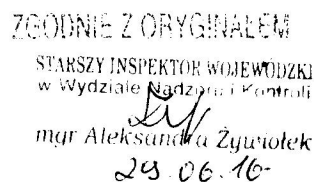 ZGODNIE Z ORYGINAŁEM
STARSZY INSPEKTOR WOJEWÓDZKI
w Wydziale Nadzoru i Kontroli
mgr Aleksandra Żywiołek
29.06.16